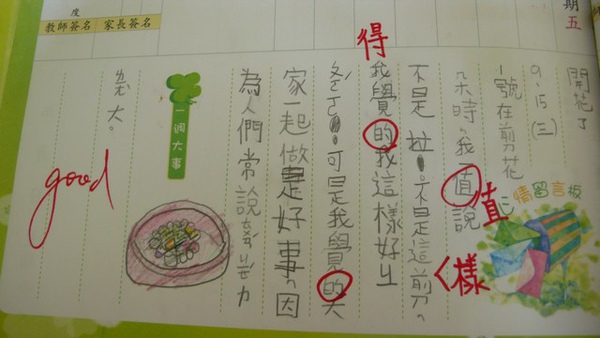 期五
度
教師簽名 家長簽名
開花了
9、15(三)
1號在剪花
朵時。我一直說
不是拉。不是這剪。
我覺的我這樣好
可是我覺的大
家一起做是好事。因
為人們常說
力
大。
得
值
樣
情留言板
一週大事
good